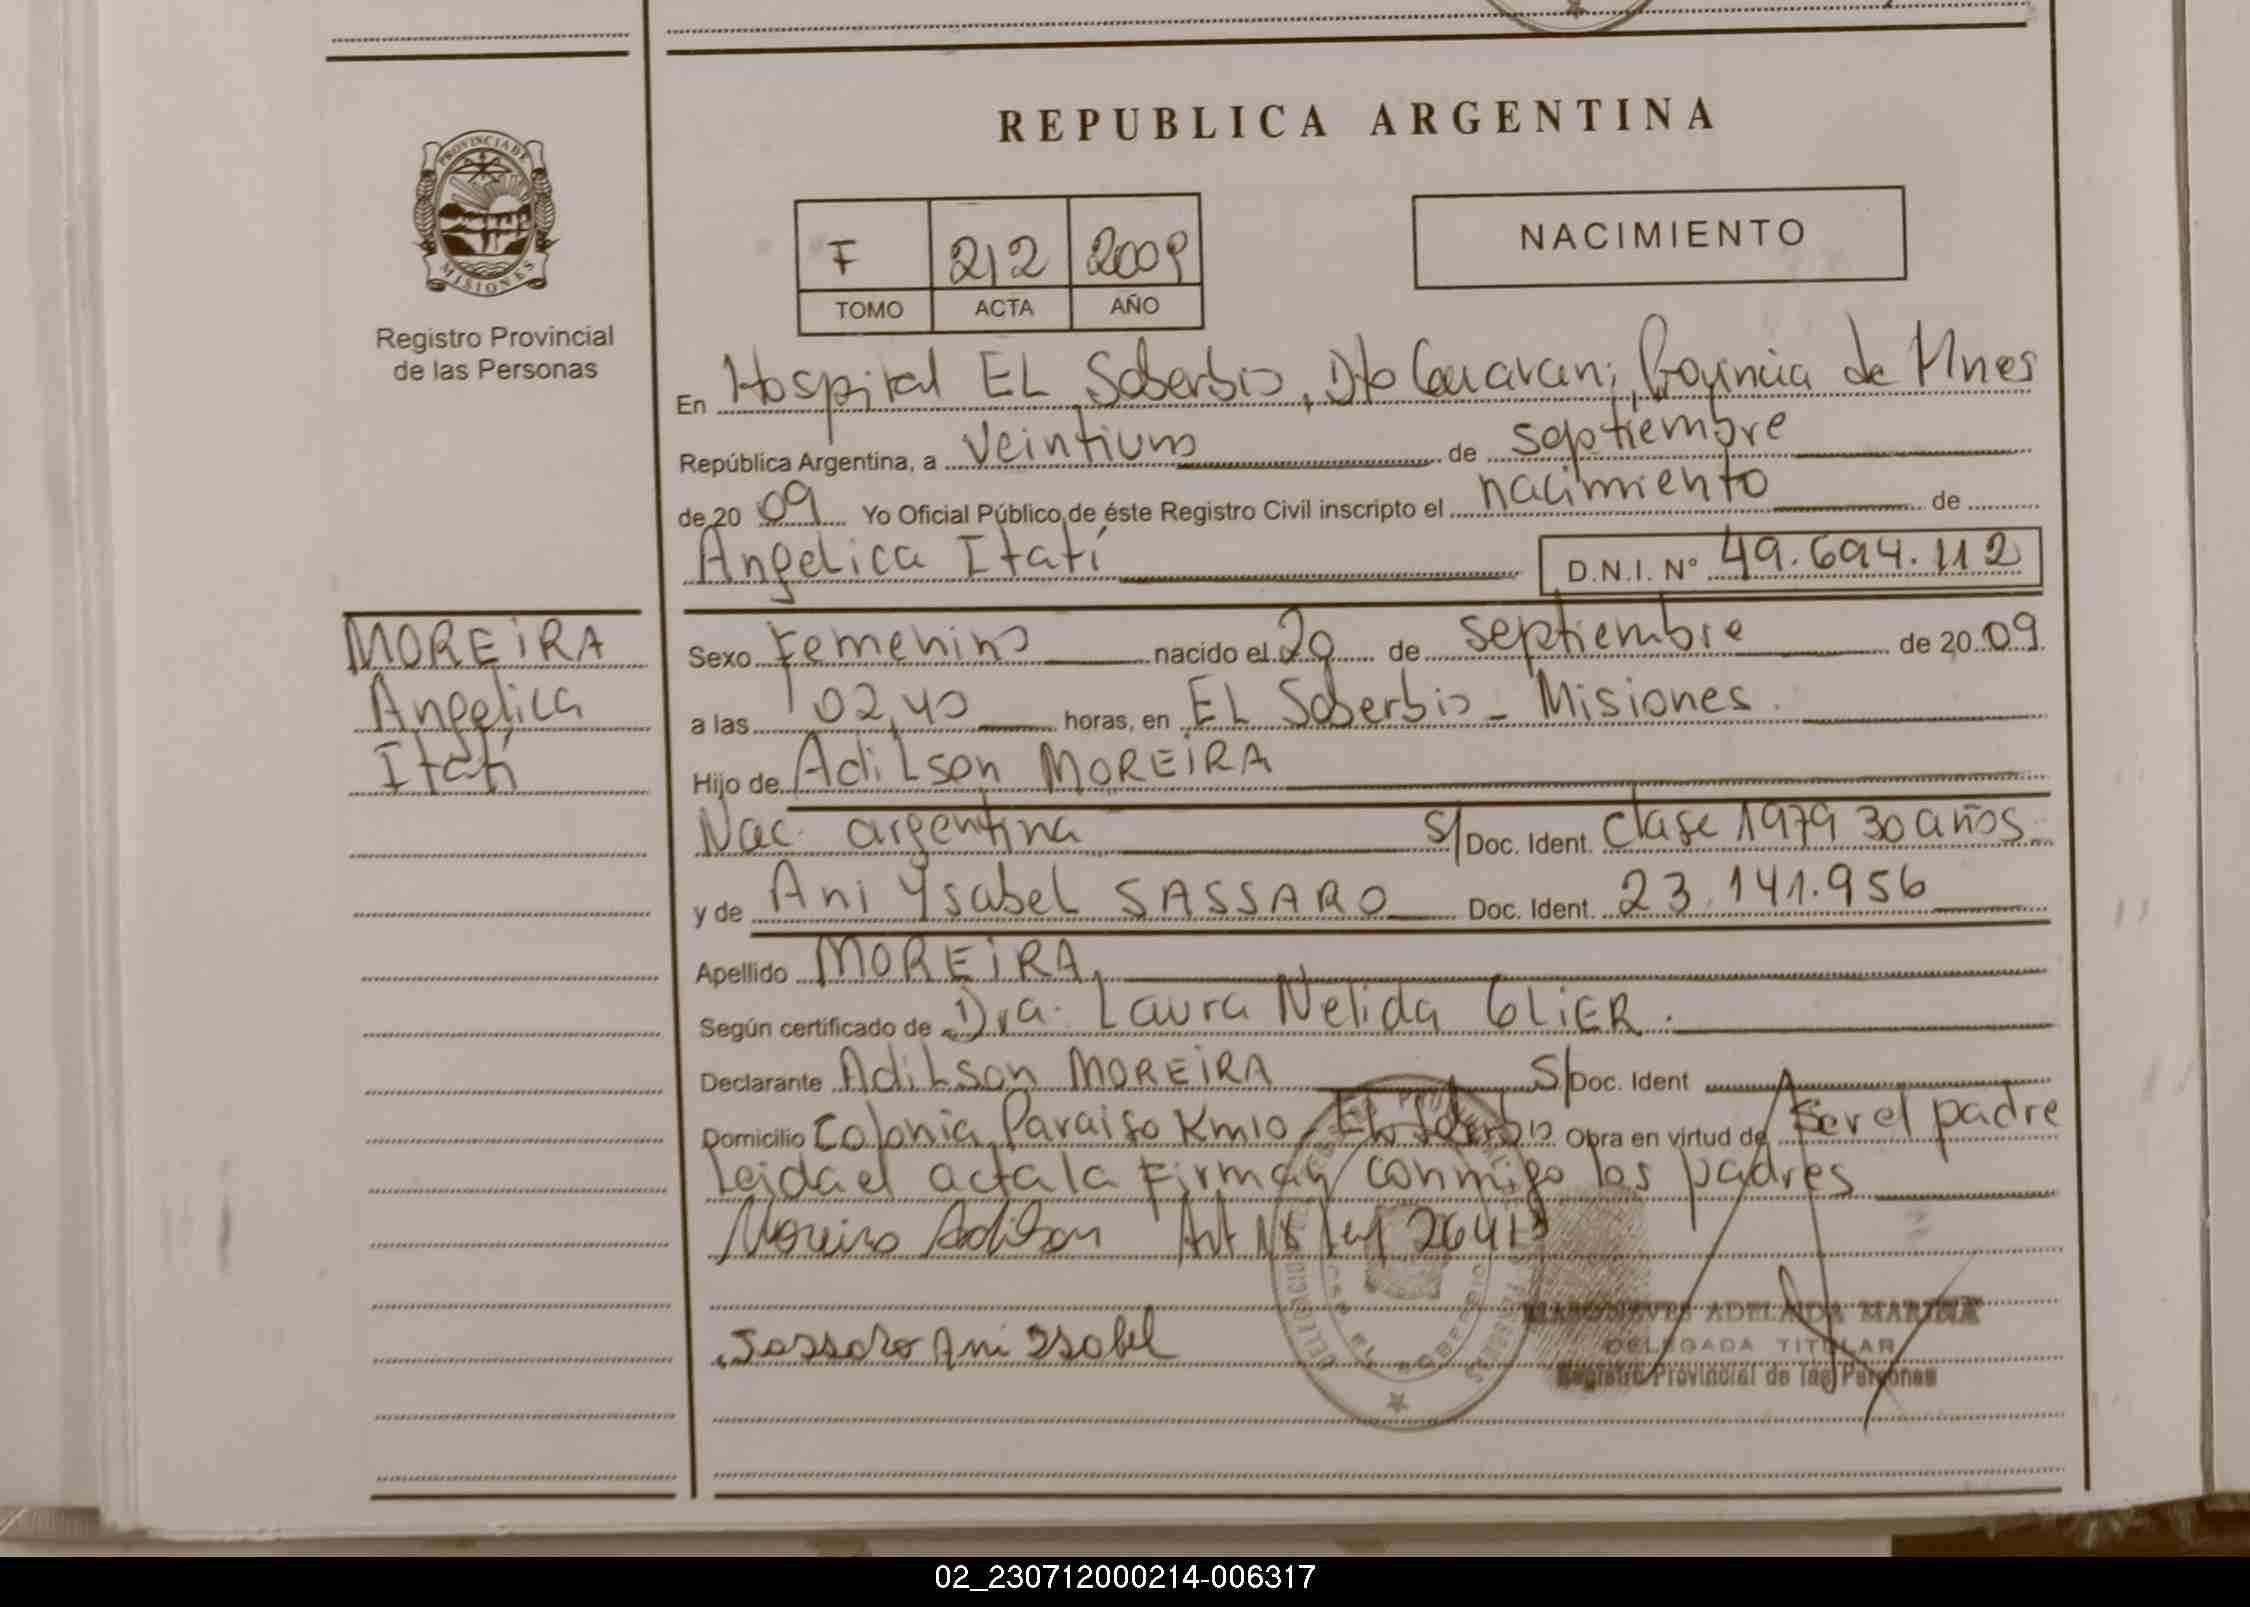 REPUBLICA ARGENTINA
PROVINCIA DE
MISIONES
Registro Provincial
de las Personas
F 212 2009
TOMO ACTA AÑO
NACIMIENTO
En Hospital EL Soberbio, Dto Guarani, Provincia de Mnes
República Argentina, a veintiuno de septiembre
de 20 09 Yo Oficial Público de éste Registro Civil inscripto el nacimiento de
Angelica Itatí D.N.I. Nº 49.694.112
MOREIRA
Angelica
Itatí
Sexo Femenino nacido el 20 de septiembre de 20 09
a las 02,40 horas, en EL Soberbio - Misiones.
Hijo de AdiLson MOREIRA
Nac. argentina S/ Doc. Ident. clase 1979 30 años
y de Ani Ysabel SASSARO Doc. Ident. 23.141.956
Apellido MOREIRA
Según certificado de Dra. Laura Nelida GLIER.
Declarante AdiLson MOREIRA S/ Doc. Ident
Domicilio Colonia Paraiso Km10 - EL Soberbio Obra en virtud de ser el padre
Leida el acta la Firman conmigo los padres
Moreira Adilson Art 18 Ley 26413
Sassaro Ani Isabel
ADELAIDA MARINA
DELEGADA TITULAR
Registro Provincial de las Personas
02_230712000214-006317